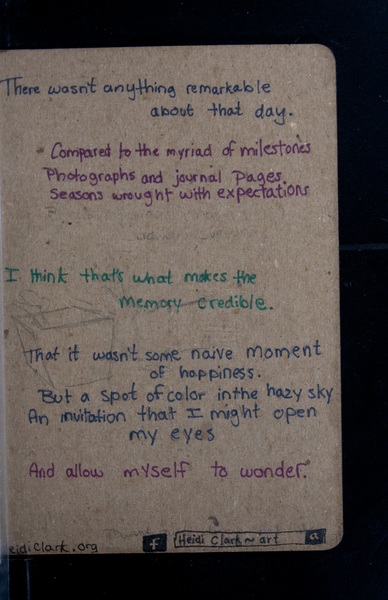 There wasn't anything remarkable
about that day.
Compared to the myriad of milestones
Photographs and journal pages.
Seasons wrought with expectations
I think that's what makes the
memory credible.
That it wasn't some naive moment
of happiness.
But a spot of color in the hazy sky
An invitation that I might open
my eyes
And allow myself to wonder.
eidiClark.org
f Heidi Clark~art a